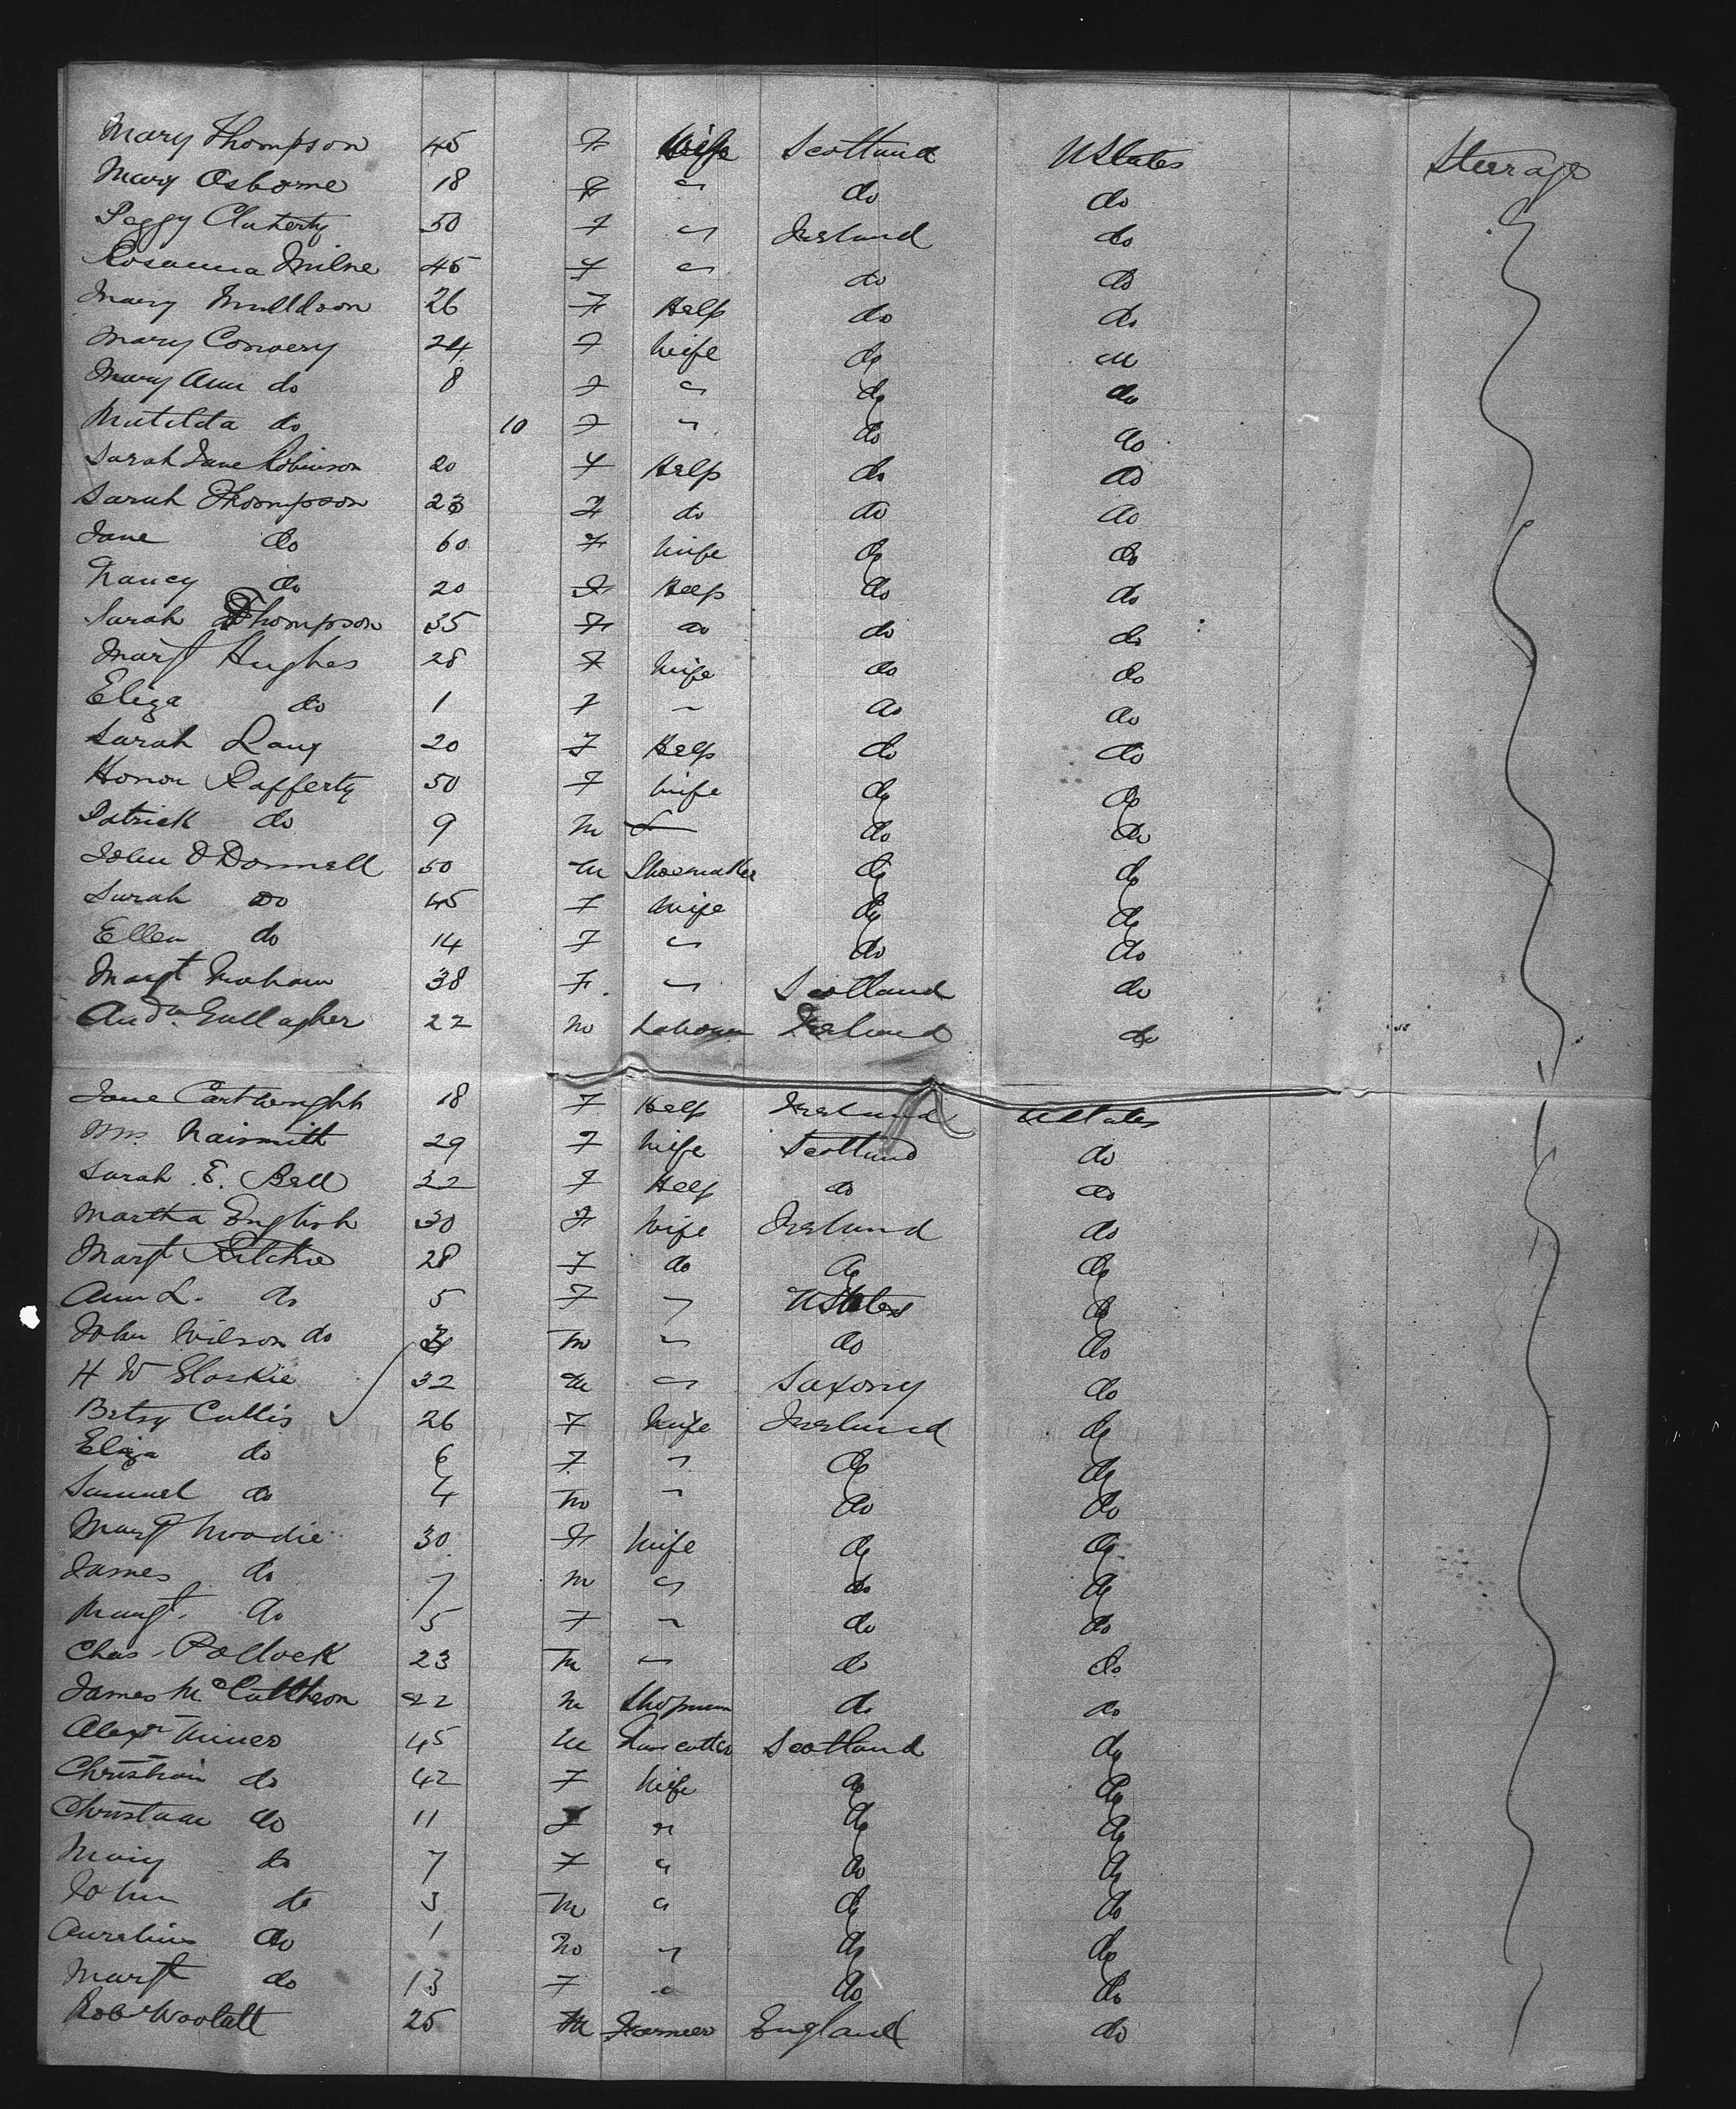 Mary Thompson 45 F Wife Scotland UStates Steerage
Mary Osborne 18 F " do do
Peggy Claherty 50 F " Ireland do
Rosanna Milne 45 F " do do
Mary Mulldoon 26 F Help do do
Mary Convery 24 F Wife do do
Mary Ann do 8 F " do do
Matilda do 10 F " do do
Sarah Jane Robinson 20 F Help do do
Sarah Thompson 23 F do do do
Jane do 60 F Wife do do
Nancy do 20 F Help do do
Sarah Thompson 35 F do do do
Margt Hughes 28 F Wife do do
Eliza do 1 F " do do
Sarah Lang 20 F Help do do
Honor Rafferty 50 F Wife do do
Patrick do 9 M do do
John O'Donnell 50 M Shoemaker do do
Sarah do 45 F Wife do do
Ellen do 14 F " do do
Margt Graham 38 F " Scotland do
Gallagher 22 M Labourer Ireland do
Jane Cartwright 18 F Help Ireland UStates
Mrs Naismith 29 F Wife Scotland do
Sarah E. Bell 32 F Help do do
Martha English 30 F Wife Ireland do
Margt Ritchie 28 F do do do
Ann L. do 5 F " UStates do
John Wilson do M " do do
H W 32 M " Saxony do
Betsy Cullis 26 F Wife Ireland do
Eliza do 6 F " do do
Samuel do 4 M " do do
Margt Woodie 30 F Wife do do
James do 7 M " do do
Margt do 5 F " do do
Chas Pollock 23 M " do do
James McCutcheon 22 M Shopman do do
Alexr 45 M Scotland do
Christian do 42 F Wife do do
Christian do 11 F " do do
Mary do 7 F " do do
John do 3 M " do do
Aurelius do 1 M " do do
Margt do 13 F " do do
Robt Woolatt 25 M Farmer England do